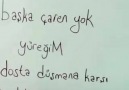 başka çaren yok
yüreğiM
dosta düşmana karşı